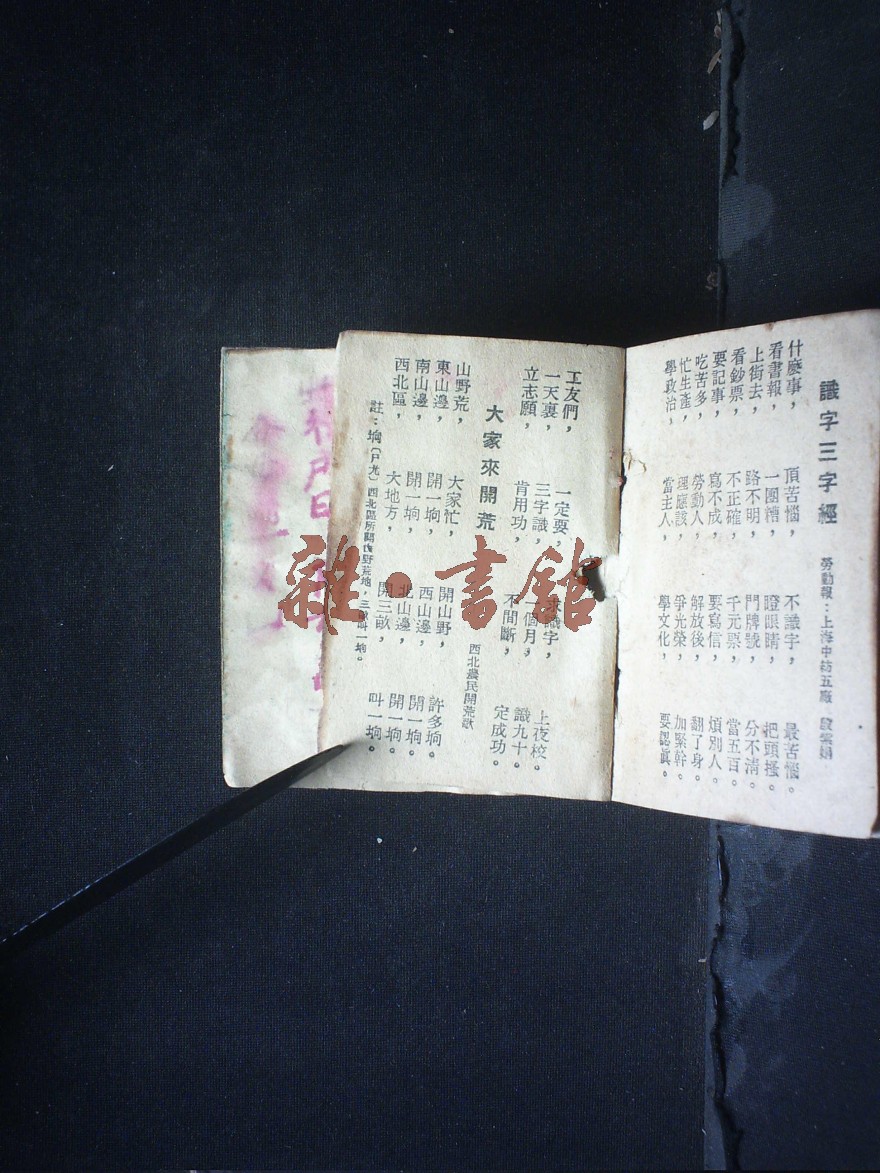 識字三字經
勞動報：上海中紡五廠
什麼事，頂苦惱，不識字，最苦惱。
看書報，一團糟，瞪眼睛，把頭搔。
上街去，路不明，門牌號，分不清。
看鈔票，不正確，千元票，當五百。
要記事，寫不成，要寫信，煩別人。
吃苦多，勞動人，解放後，翻了身。
忙生產，理應該，爭光榮，加緊幹。
學政治，當主人，學文化，要認眞。
工友們，一定要，求識字，上夜校。
一天裏，三字識，一個月，識九十。
立志願，肯用功，不間斷，定成功。
大家來開荒
西北農民開荒歌
山野荒，大家忙，開山野，許多垧。
東山邊，開一垧，西山邊，開一垧。
南山邊，開一垧，北山邊，開一垧。
西北區，大地方，開三畝，叫一垧。
註：垧（ㄕㄤ）西北區所開山野荒地，三畝叫一垧。
雜·書館